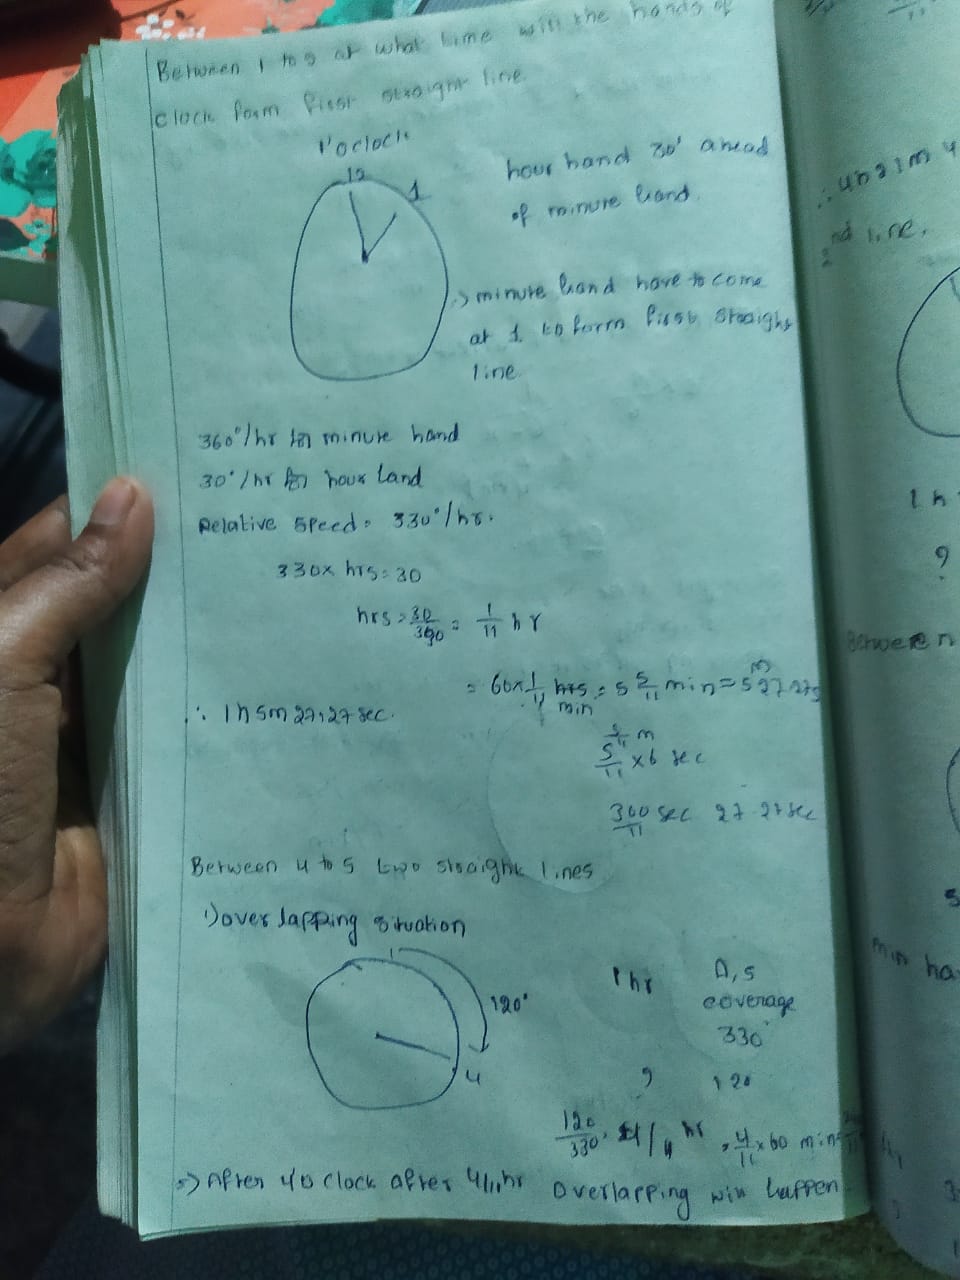 Between 1 to 2 at what time will the hands of
clock form first straight line
1'oclock
12
1
hour hand 30° ahead
of minute hand
=> minute hand have to come
at 1 to form first straight
line
360°/hr for minute hand
30°/hr for hour hand
Relative speed = 330°/hr.
330 x hrs = 30
hrs = 30/330 = 1/11 hr
= 60x1/11 hrs = 5 5/11 min = 5m 27.27s
min
∴ 1h 5m 27.27 sec.
5/11 m
5/11 x 6 sec
300/11 sec 27.27 sec
Between 4 to 5 two straight lines
1) overlapping situation
120°
4
1 hr
coverage
330°
? 120
120/330 = 4/11 hr = 4/11 x 60 min
=> After 4'o clock after 4/11 hr overlapping will happen
2nd line.
1h
?
Between
5
min ha